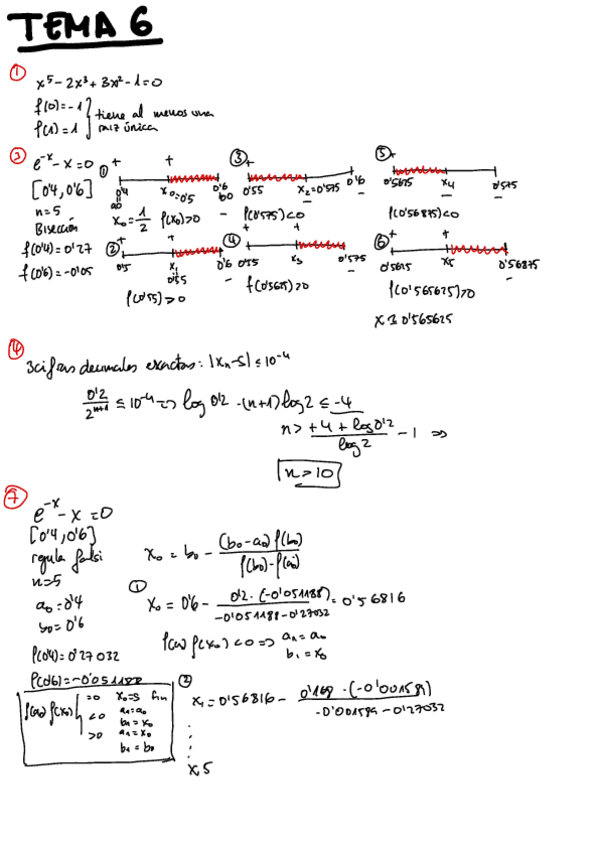 TEMA 6
①
x⁵ - 2x³ + 3x² - 1 = 0
f(0) = -1
f(1) = 1 } tiene al menos una raíz única
③ e⁻ˣ - x = 0
[0'4, 0'6]
n = 5
Bisección
f(0'4) = 0'27
f(0'6) = -0'05
① + + 0'4 a0 x₀ = 0'5 0'6 b0 -
x₀ = 1/2 f(x₀) > 0
② + + 0'5 x₁ 0'55 0'6 -
f(0'55) > 0
③ + 0'55 x₂ = 0'575 - 0'6 -
f(0'575) < 0
④ + + 0'55 x₃ 0'575 -
f(0'5625) > 0
⑤ + 0'5625 x₄ - 0'575 -
f(0'56875) < 0
⑥ + + 0'5625 x₅ 0'56875 -
f(0'565625) > 0
0'565625
④
3 cifras decimales exactas: |xₙ - s| ≤ 10⁻⁴
0'2 / 2ⁿ⁺¹ ≤ 10⁻⁴ => log 0'2 - (n+1) log 2 ≤ -4
n > (+4 + log 0'2) / log 2 - 1 =>
n > 10
⑦
e⁻ˣ - x = 0
[0'4, 0'6]
regula falsi
n = 5
a₀ = 0'4
b₀ = 0'6
f(0'4) = 0'27032
f(0'6) = -0'051188
f(a₀) f(x₀) { = 0 x₀ = s fin
< 0 a₁ = a₀
b₁ = x₀
> 0 a₁ = x₀
b₁ = b₀
x₀ = b₀ - (b₀ - a₀) f(b₀) / f(b₀) - f(a₀)
① x₀ = 0'6 - 0'2 · (-0'051188) / -0'051188 - 0'27032 = 0'56816
f(a₀) f(x₀) < 0 => a₁ = a₀
b₁ = x₀
② x₁ = 0'56816 - 0'168 · (-0'001594) / -0'001594 - 0'27032
x5